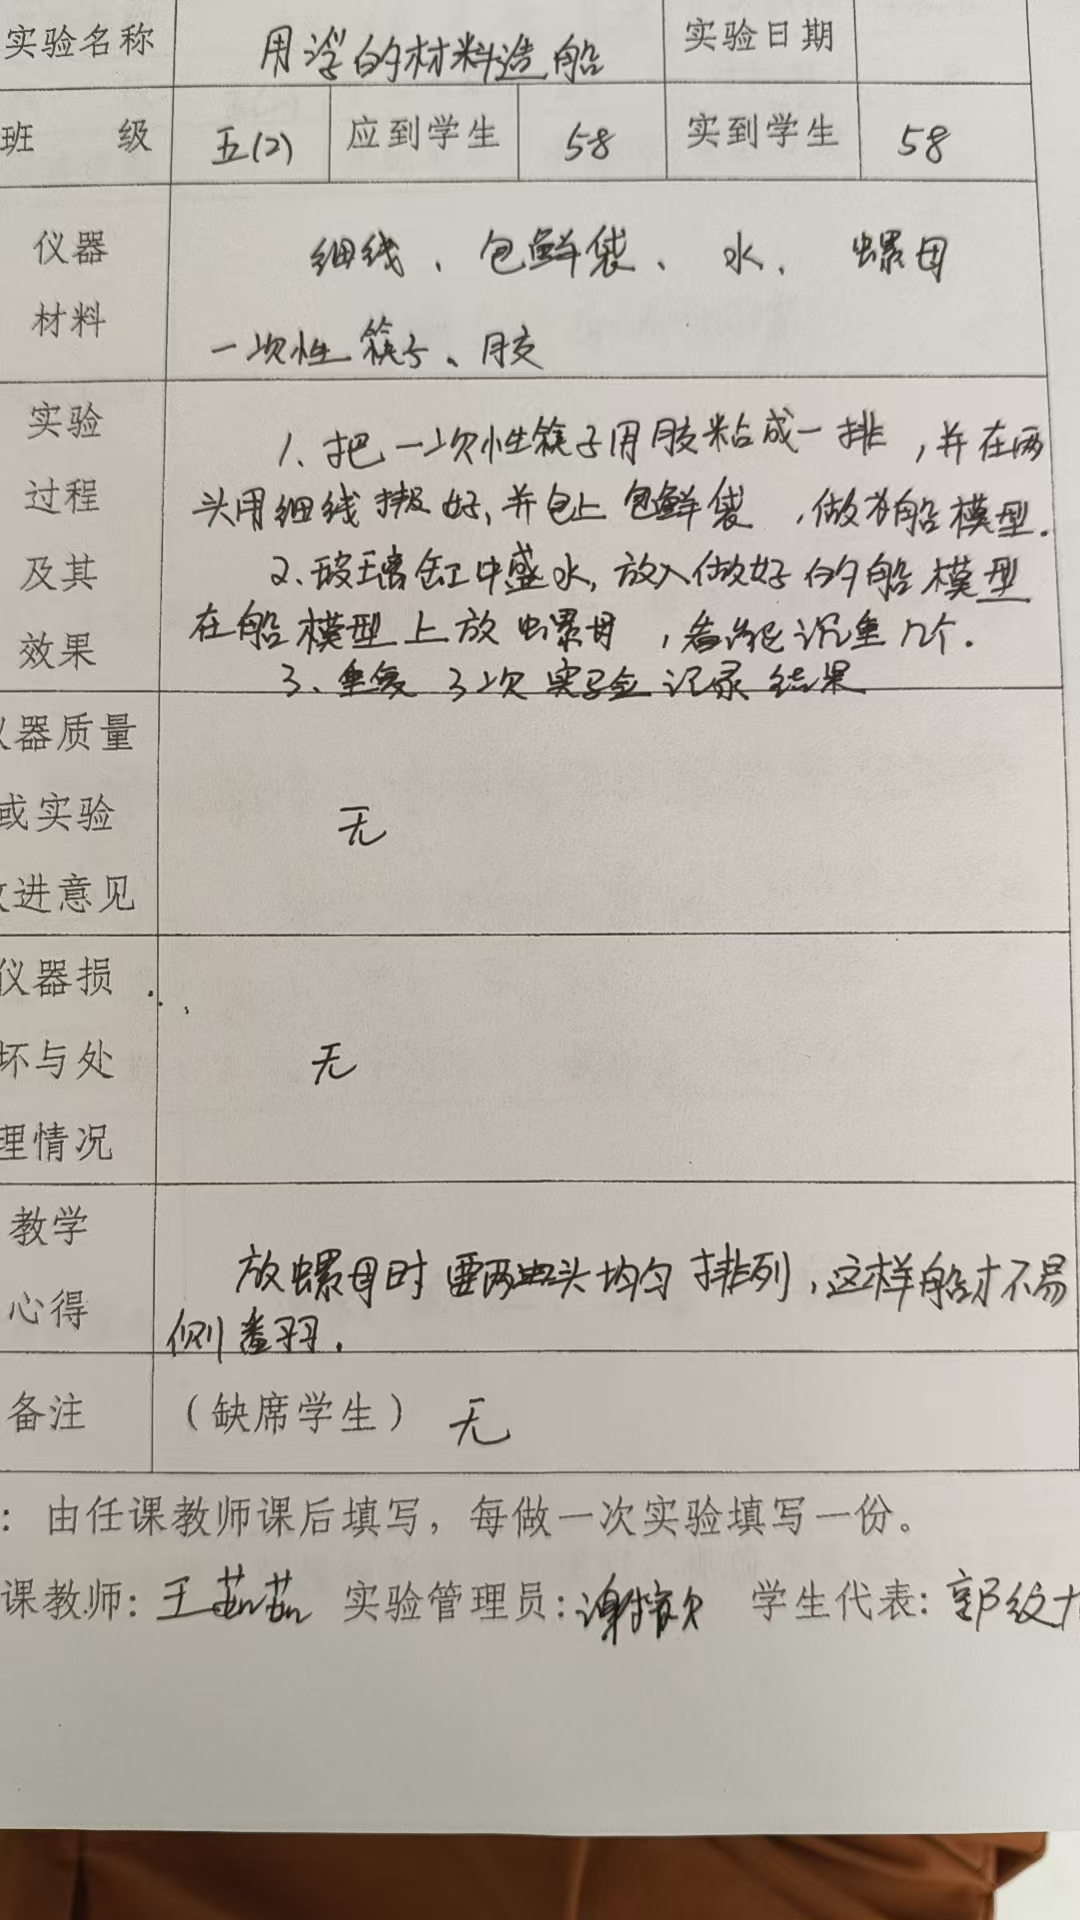 实验名称 用浮的材料造船 实验日期
班 级 五(2) 应到学生 58 实到学生 58
仪器 细线、包鲜袋、水、螺母
材料 一次性筷子、胶
实验 1、把一次性筷子用胶粘成一排,并在两
过程 头用细线绑好,并包上包鲜袋,做为船模型.
及其 2、玻璃缸中盛水,放入做好的船模型
效果 在船模型上放螺母,看能沉重几个.
3、重复3次实验记录结果
仪器质量
或实验 无
改进意见
仪器损
坏与处 无
理情况
教学 放螺母时要两头均匀排列,这样船才不易
心得 侧翻.
备注 (缺席学生) 无
:由任课教师课后填写,每做一次实验填写一份。
课教师:王茹茹 实验管理员:谢 学生代表:郭